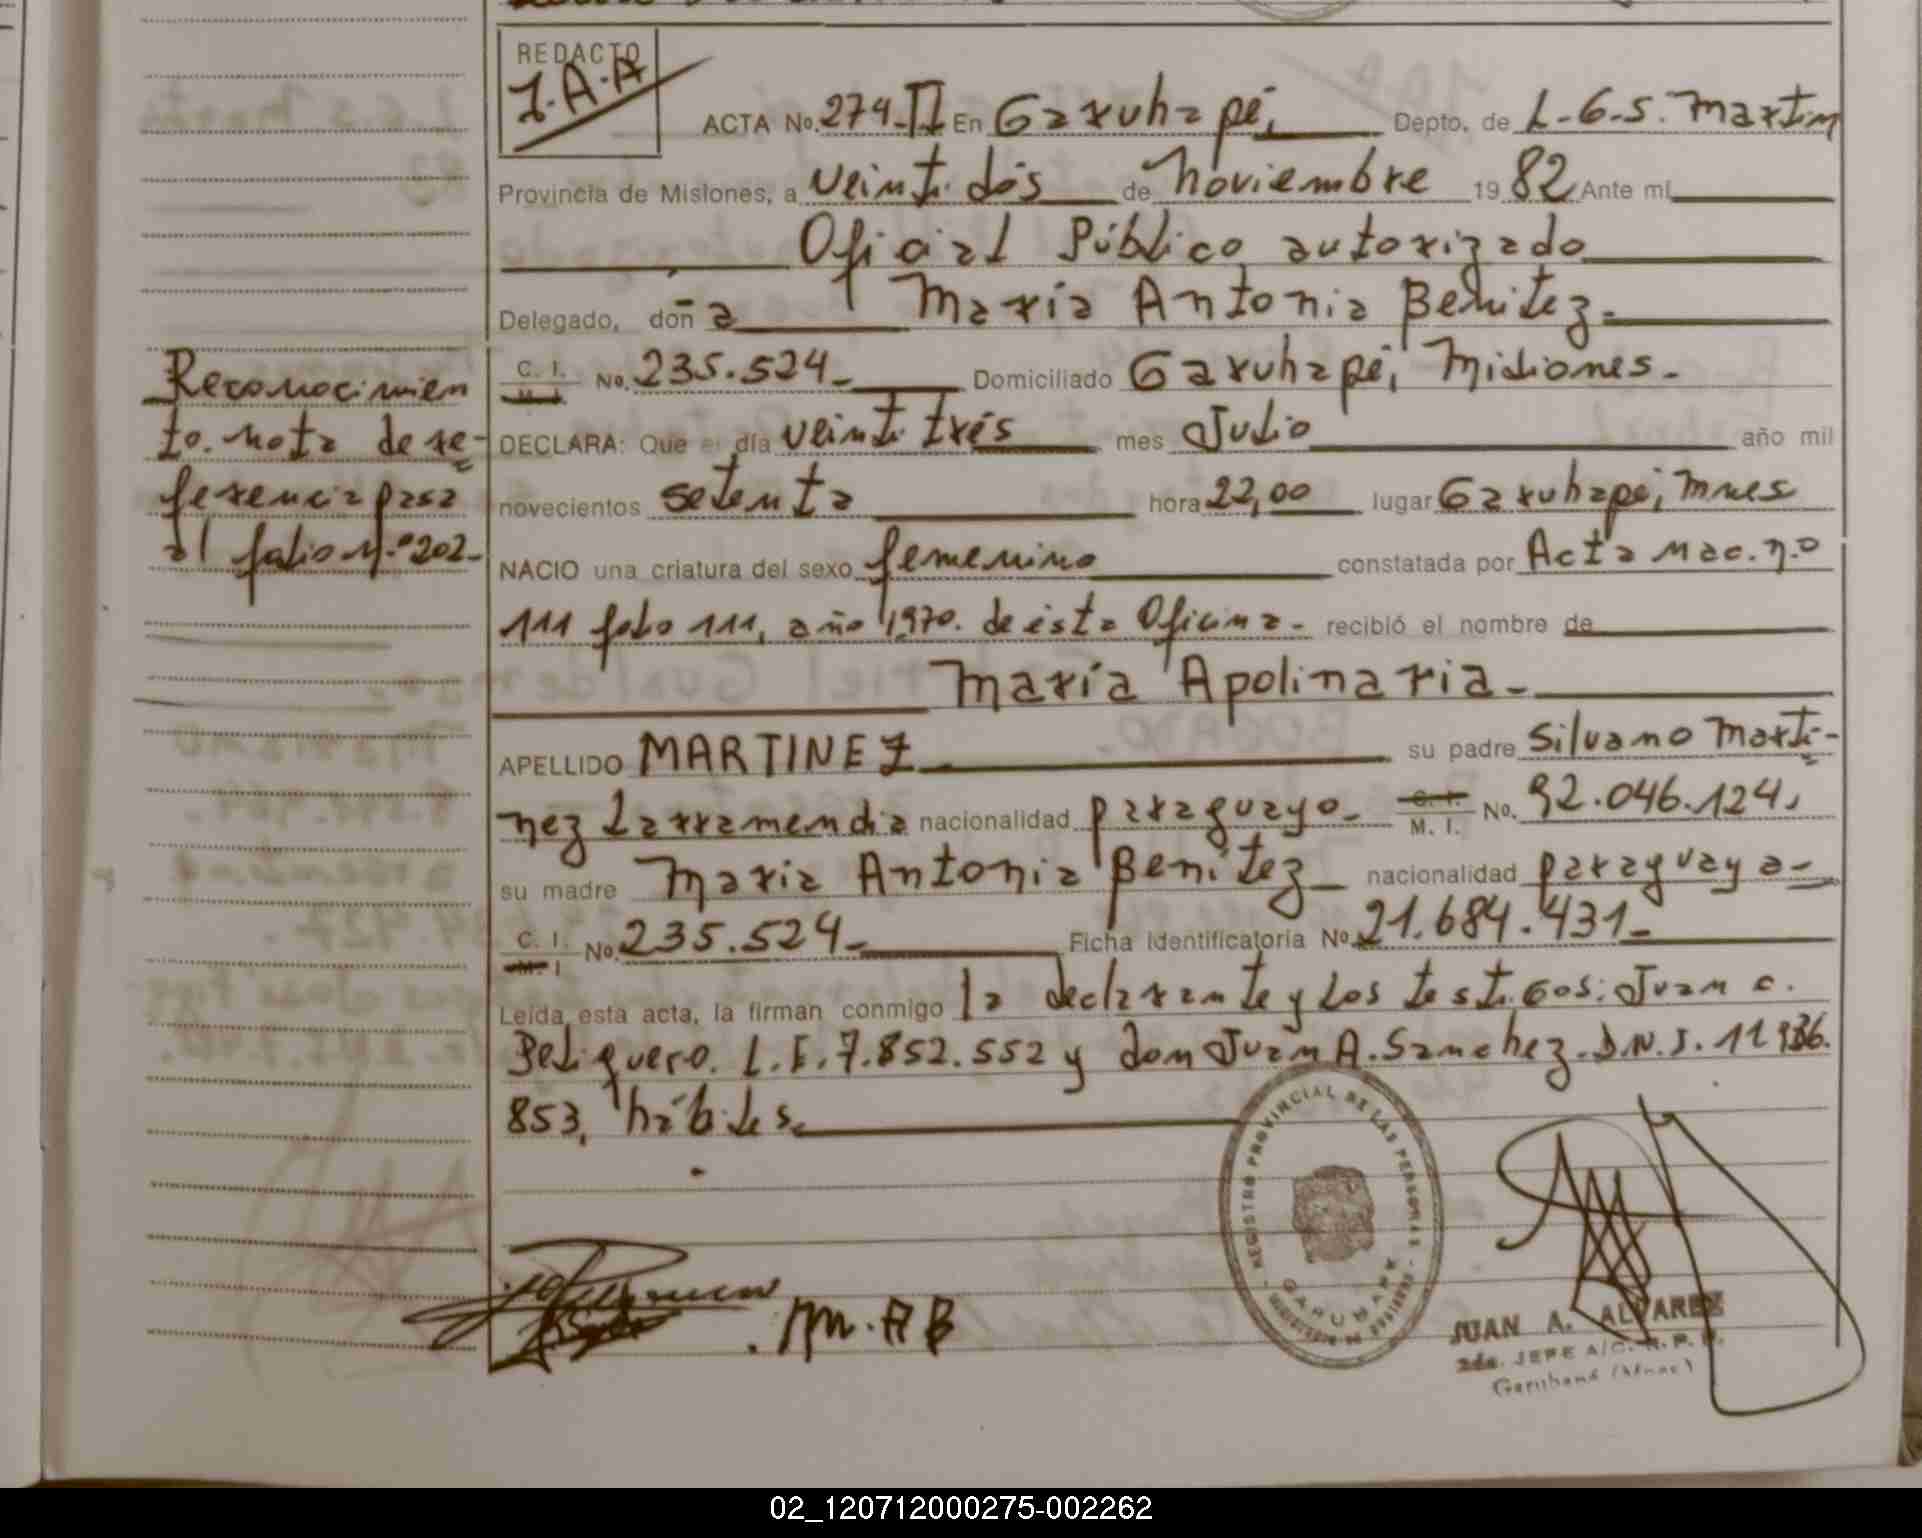 REDACTO
J.A.A
ACTA No. 274-II En Garuhapé, Depto. de L.G.S. Martin
Provincia de Misiones, a veinti dós de noviembre 1982 Ante mí
Oficial Público autorizado
Delegado, doña María Antonia Benitez.
C. I. M. I. No. 235.524 Domiciliado Garuhapé, Misiones.
DECLARA: Que el día veinti trés mes Julio año mil
novecientos setenta hora 22,00 lugar Garuhapé, Mnes
NACIO una criatura del sexo femenino constatada por Acta Nac. n.o
111 folio 111, año 1970. de ésta Oficina. recibió el nombre de
María Apolinaria
APELLIDO MARTINEZ su padre Silvano Marti-
nez Larramendia nacionalidad paraguayo C. I. M. I. No. 92.046.124,
su madre María Antonia Benitez nacionalidad paraguaya
C. I. M. I No. 235.524 Ficha Identificatoria No. 21.684.431
Leída esta acta, la firman conmigo la declarante y los testigos: Juan C.
Peliquero. L.E. 7.852.552 y don Juan A. Sanchez. D.N.I. 11.936.
853, hábiles
Reconocimien
to. nota de re-
ferencia pasa
al folio N.º 202
M. A B
REGISTRO PROVINCIAL DE LAS PERSONAS
GARUHAPE
JUAN A. ALVAREZ
2da. JEFE A/C. R. P.
Garuhapé (Mnes)
02_120712000275-002262